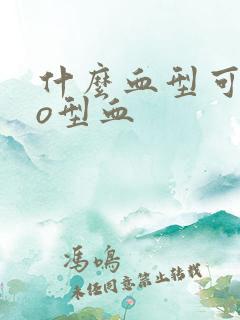 什麼血型可
o型血
馮鳴
未经同意禁止转载